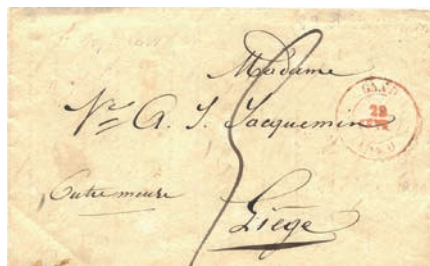 Madame
Vve A. J. Jacquemin
Outremeuse
Liège
3
GAND
29